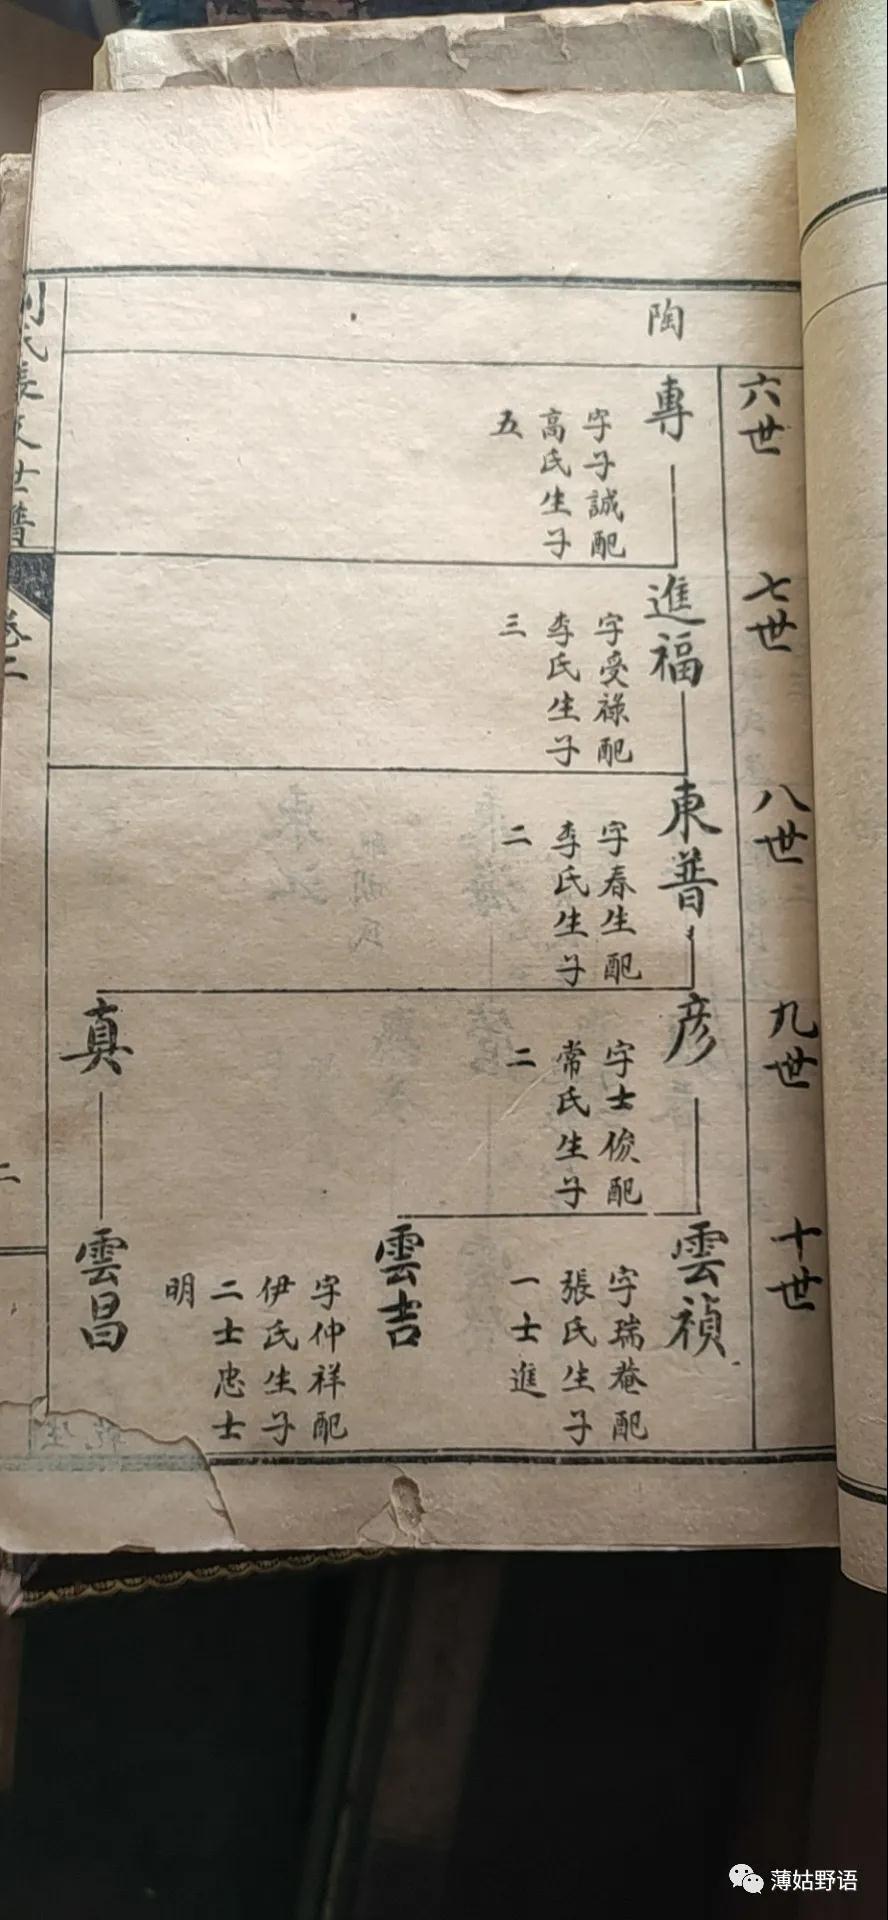 六世
七世
八世
九世
十世
陶
專
字子誠配
高氏生子
五
進福
字受祿配
李氏生子
三
東普
字春生配
李氏生子
二
彦
字士俊配
常氏生子
二
真
雲禎
字瑞菴配
張氏生子
一士進
雲吉
字仲祥配
伊氏生子
二士忠士
明
雲昌
氏長支世譜
卷二
二
薄姑野语